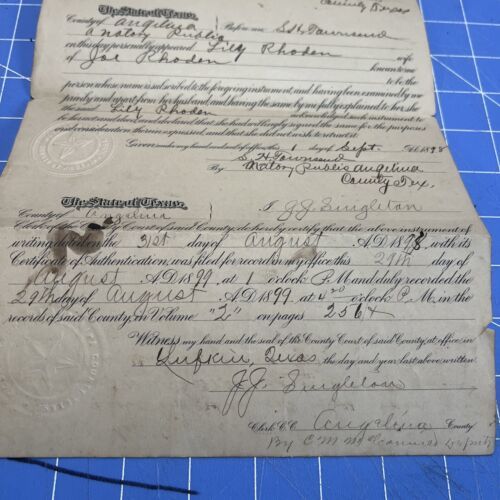 County Texas
The State of Texas,
County of Angelina Before me S H Townsend
a notory Public
on this day personally appeared Lily Rhoden
of Joe Rhoden wife
known to me
to be the
person whose name is subscribed to the foregoing instrument, and having been examined by me
privily and apart from her husband, and having the same by me fully explained to her, she
Lily Rhoden acknowledged such instrument to
be her act and deed, and declared that she had willingly signed the same for the purposes
and consideration therein expressed, and that she did not wish to retract it.
Given under my hand and seal of office this 1 day of Sept. AD 1898
S. H. Townsend
By Notory Public Angelina
County Tex.
The State of Texas,
County of Angelina I J J Singleton
Clerk of the County Court of said County, do hereby certify that the above instrument of
writing dated on the 31st day of August A.D. 1898, with its
Certificate of Authentication, was filed for record in my office this 29th day of
August A.D. 1899, at 1 o'clock P M. and duly recorded the
29th day of August A.D. 1899 at o'clock P. M. in the
records of said County, in Volume "2" on pages 256 +
Witness my hand and the seal of the County Court of said County, at office in
Lufkin Texas the day and year last above written.
J J Singleton
Clerk C. C. Angelina County
By C M Deputy